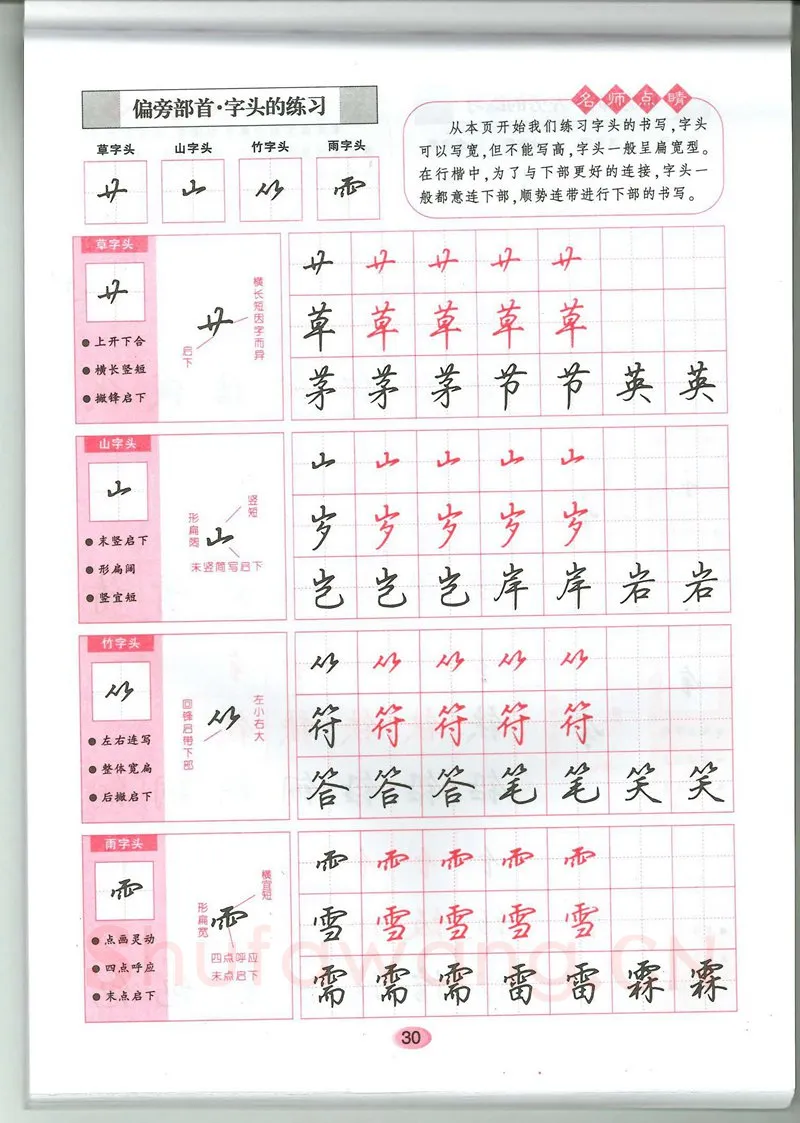 偏旁部首·字头的练习
名师点睛
从本页开始我们练习字头的书写,字头
可以写宽,但不能写高,字头一般呈扁宽型。
在行楷中,为了与下部更好的连接,字头一
般都意连下部,顺势连带进行下部的书写。
草字头 山字头 竹字头 雨字头
艹 山 ⺮ ⻗
草字头
艹
上开下合
横长竖短
撇锋启下
艹
横长短因字而异
启下
艹 艹 艹 艹 艹
草 草 草 草 草
茅 茅 茅 节 节 英 英
山字头
山
末竖启下
形扁阔
竖宜短
山
竖短
形扁阔
末竖简写启下
山 山 山 山 山
岁 岁 岁 岁 岁
岂 岂 岂 岸 岸 岩 岩
竹字头
⺮
左右连写
整体宽扁
后撇启下
⺮
左小右大
回锋启带下部
⺮ ⺮ ⺮ ⺮ ⺮
符 符 符 符 符
答 答 答 笔 笔 笑 笑
雨字头
⻗
点画灵动
四点呼应
末点启下
⻗
横宜短
形扁宽
四点呼应
末点启下
⻗ ⻗ ⻗ ⻗ ⻗
雪 雪 雪 雪 雪
需 需 需 雷 雷 霖 霖
Shufawang.CN
30